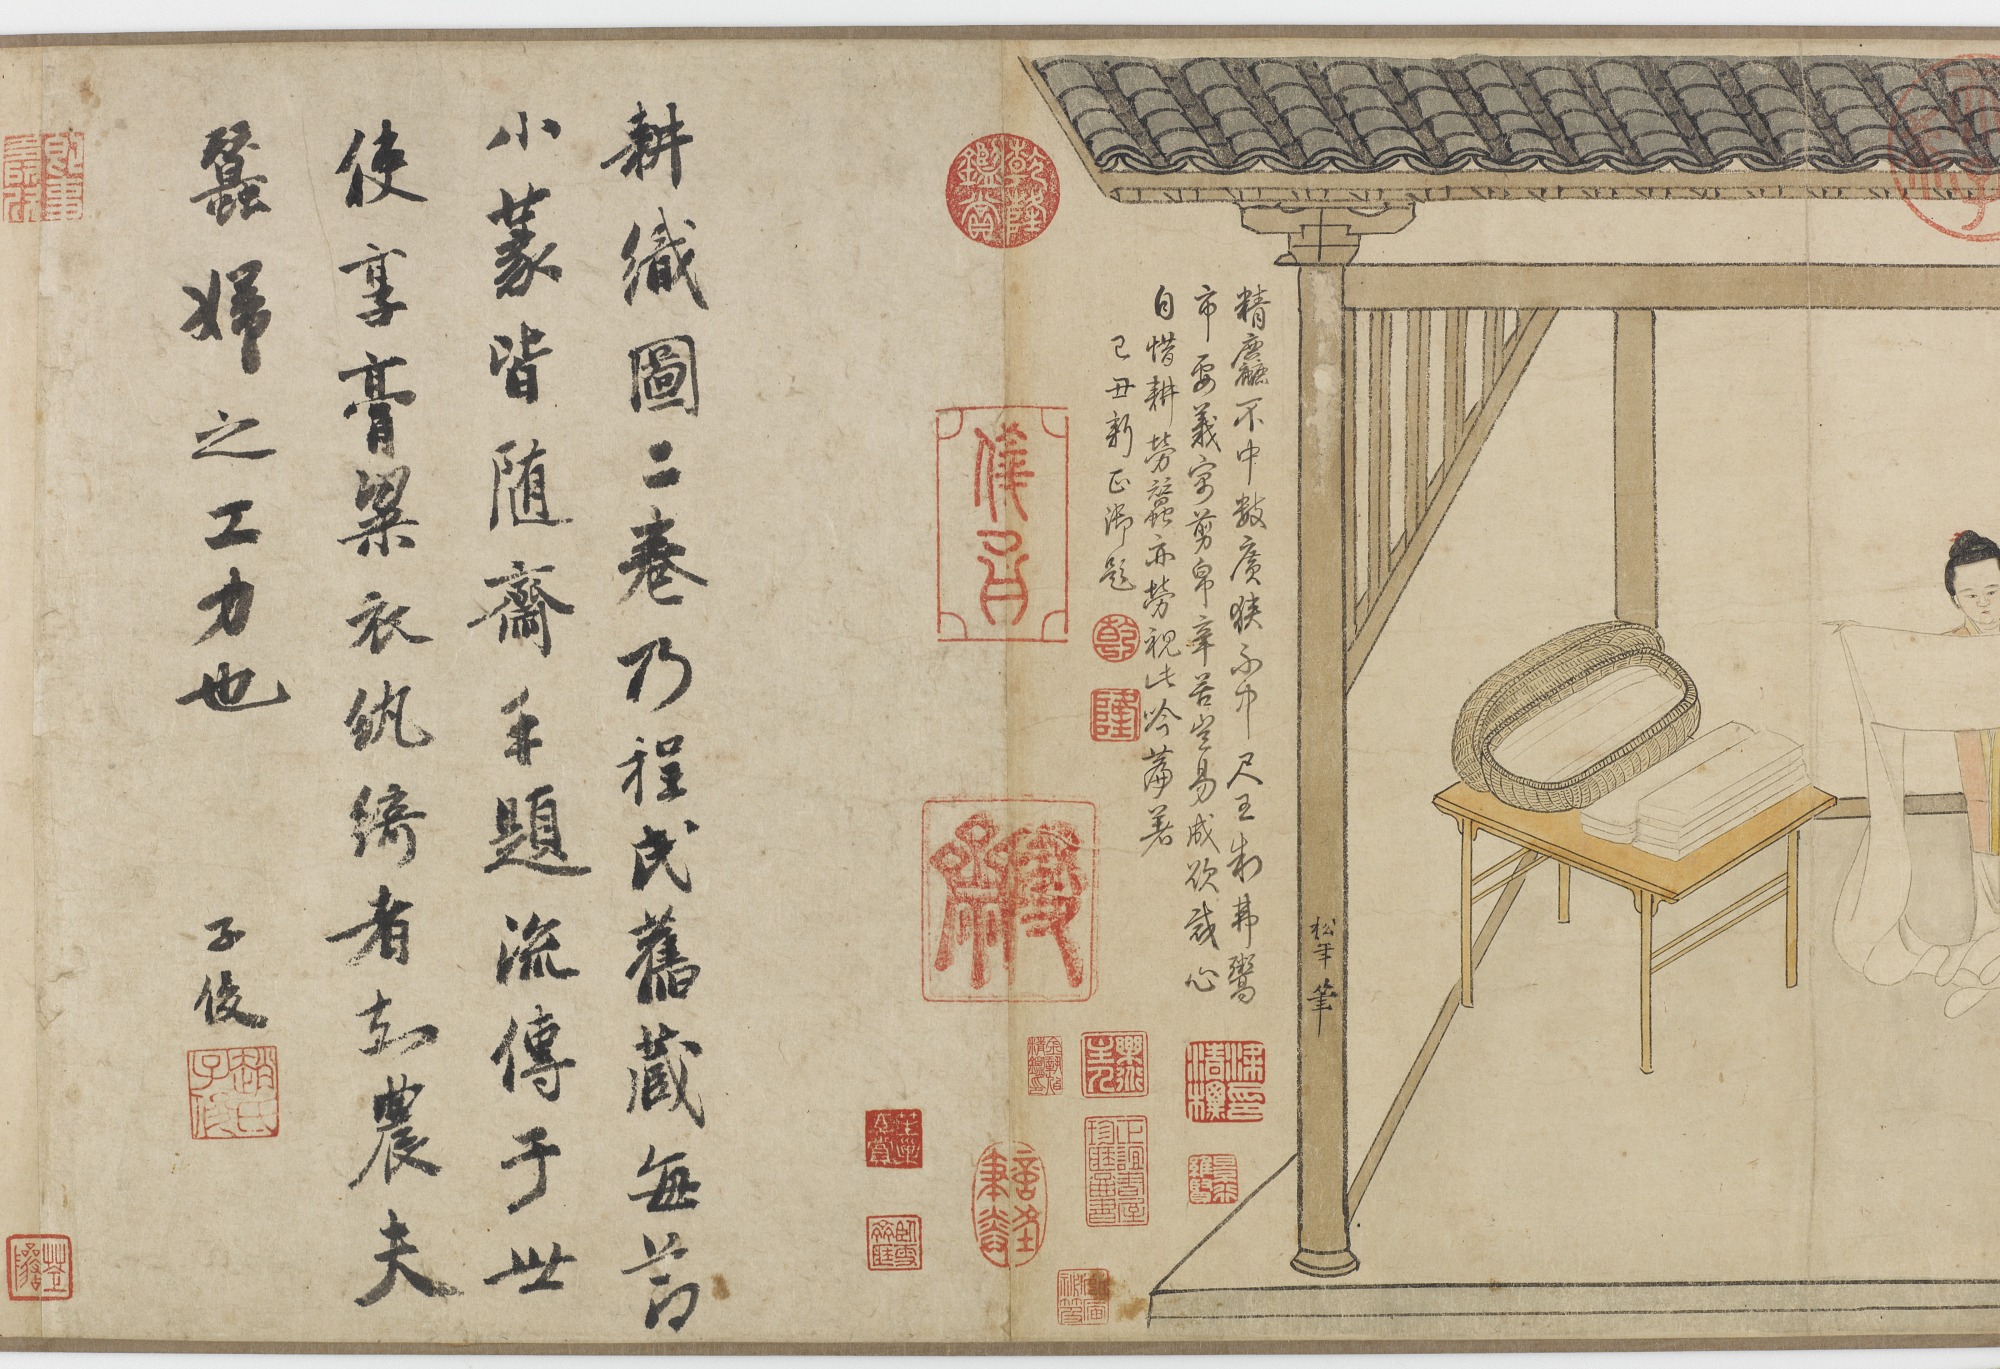 松年筆
精麤不中數廣狹不中尺王制弗鬻
市要義寓剪帛辛苦豈易成欲裁心
自惜耕勞蠶亦勞視此吟篇著
己丑新正御題
乾
隆
乾隆鑑賞
耕織圖二卷乃程氏舊藏每節
小篆皆随齋手題流傳于世
使享膏粱衣紈綺者知農夫
蠶婦之工力也
子俊
趙氏子俊